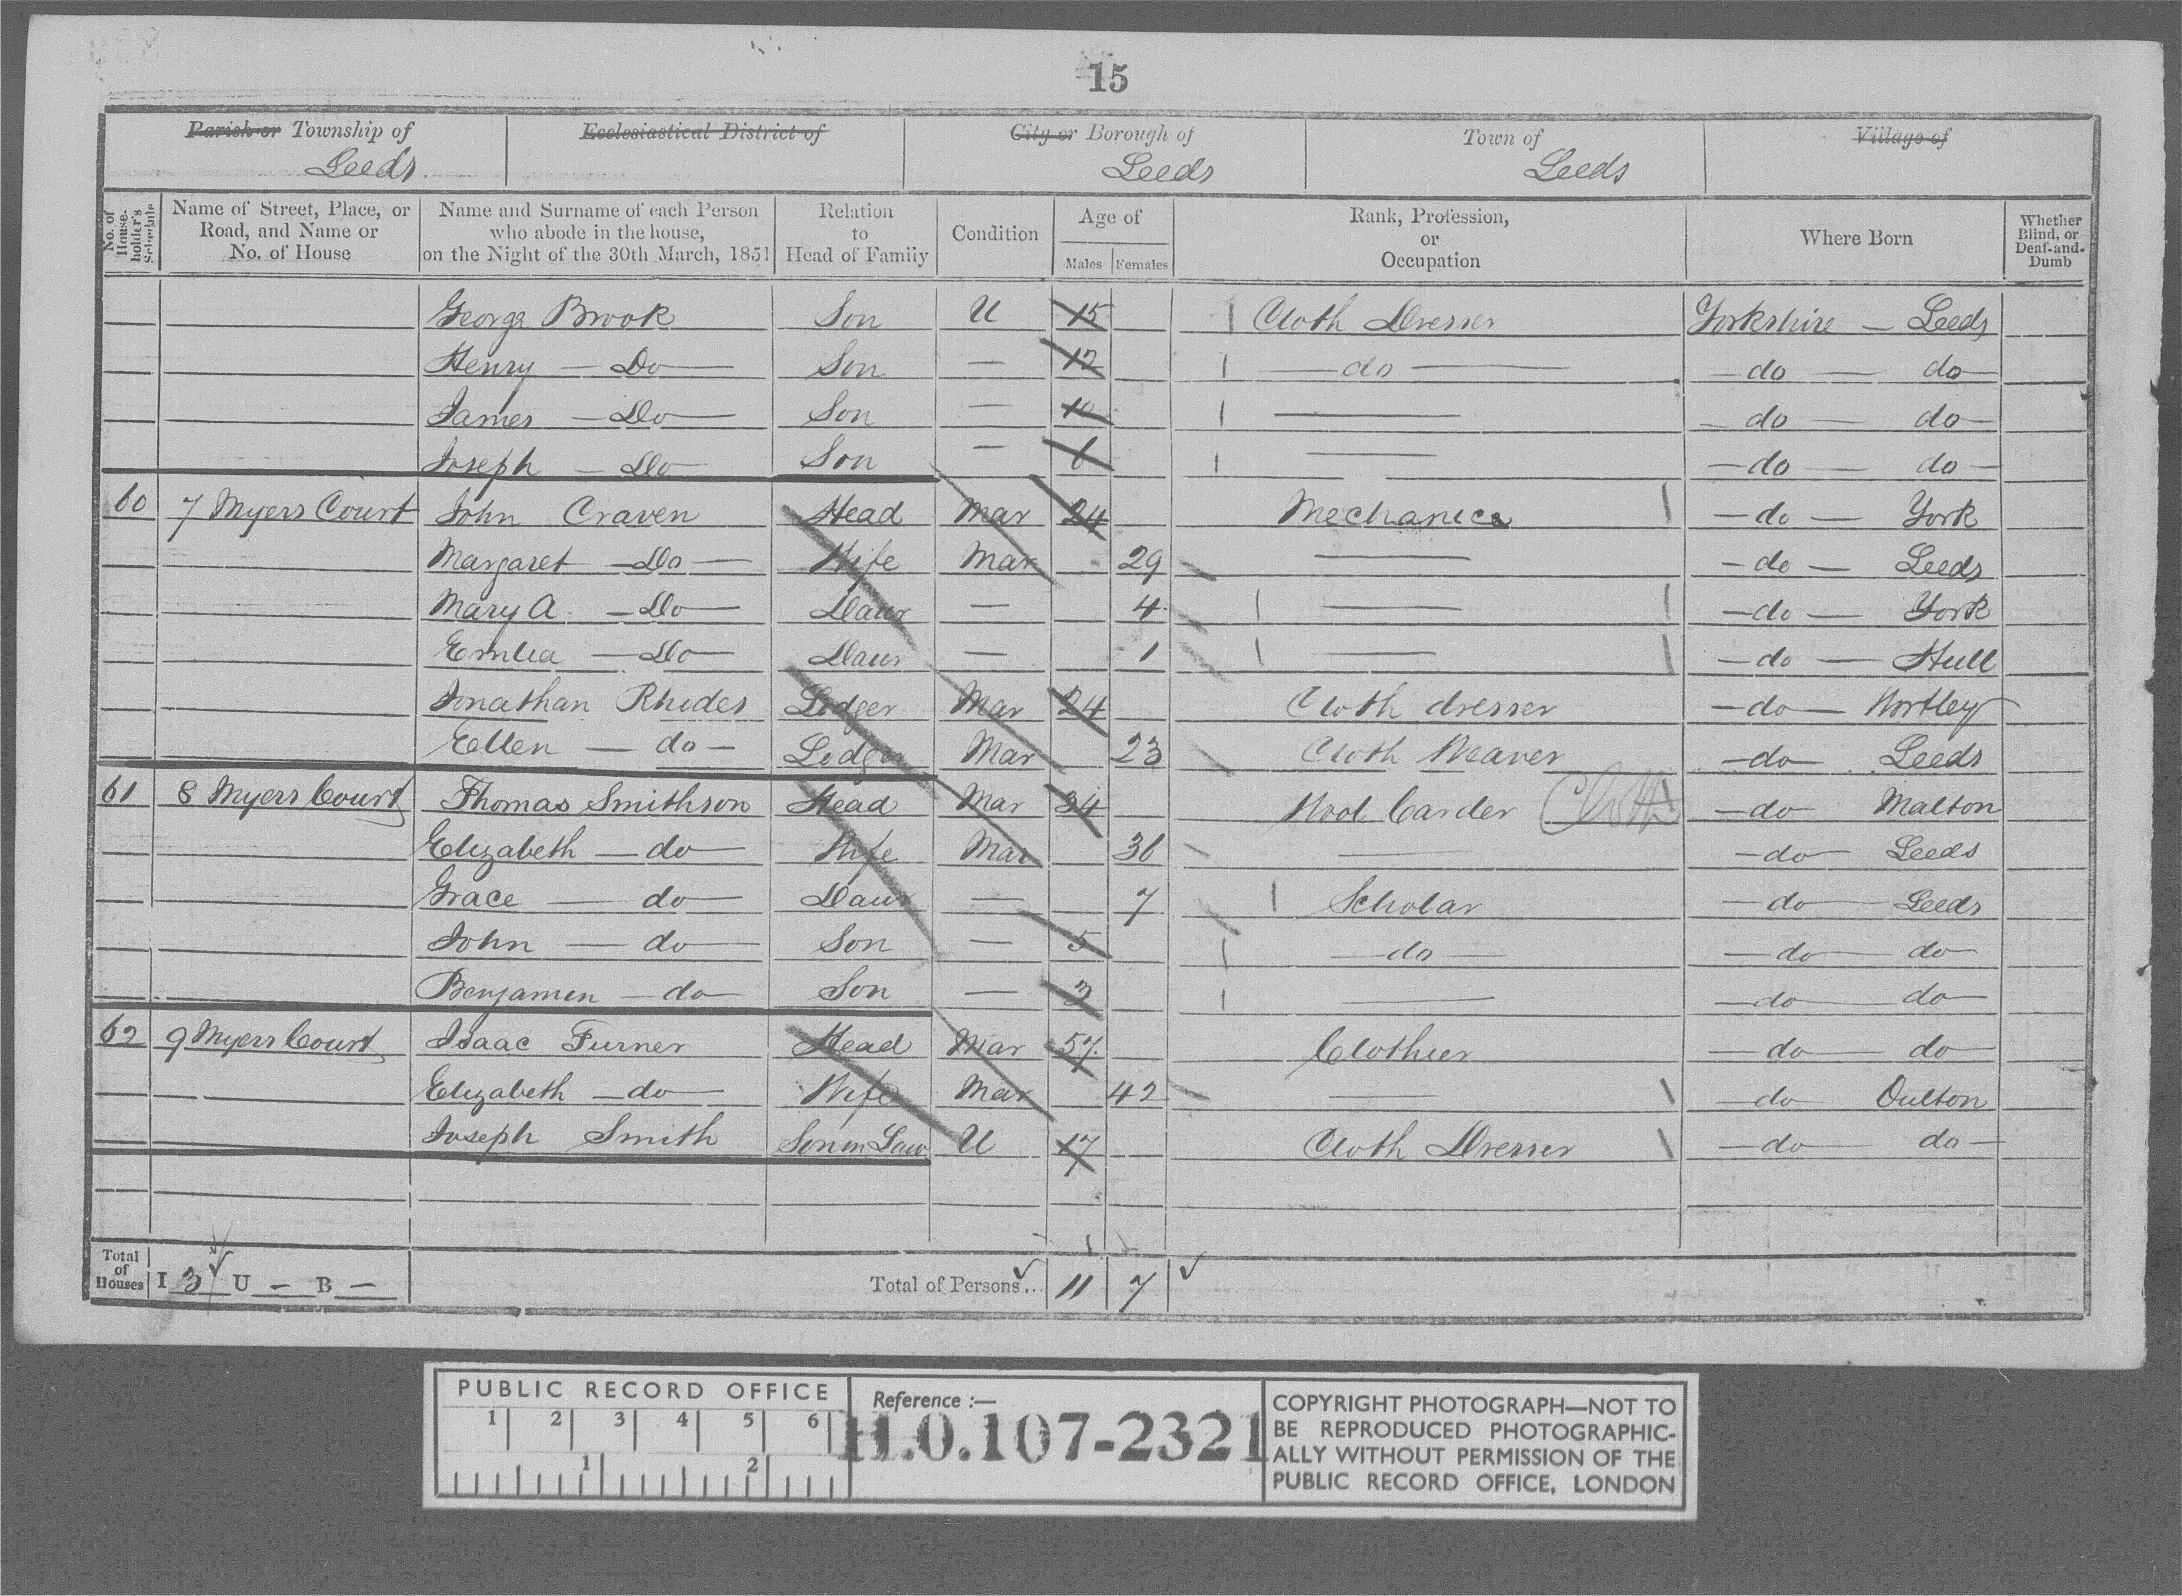 15
Parish or Township of Ecclesiastical District of City or Borough of Town of Village of
Leeds Leeds Leeds
No. of House-holder's Schedule Name of Street, Place, or Road, and Name or No. of House Name and Surname of each Person who abode in the house, on the Night of the 30th March, 1851 Relation to Head of Family Condition Age of Males Females Rank, Profession, or Occupation Where Born Whether Blind, or Deaf-and-Dumb
George Brook Son U 15 Cloth Dresser Yorkshire — Leeds
Henry — Do — Son — 12 — do — — do — do —
James — Do — Son — 10 — — do — do —
Joseph — Do — Son — 6 — — do — do —
60 7 Myers Court John Craven Head Mar 24 Mechanic — do — York
Margaret — Do — Wife Mar 29 — — do — Leeds
Mary A — Do — Daur — 4 — — do — York
Emilia — Do — Daur — 1 — — do — Hull
Jonathan Rhodes Lodger Mar 24 Cloth dresser — do — Wortley
Ellen — do — Lodger Mar 23 Cloth Weaver — do — Leeds
61 8 Myers Court Thomas Smithson Head Mar 34 Wool Carder Cloth — do — Malton
Elizabeth — do — Wife Mar 36 — — do — Leeds
Grace — do — Daur — 7 Scholar — do — Leeds
John — do — Son — 5 — do — — do — do —
Benjamin — do — Son — 3 — — do — do —
62 9 Myers Court Isaac Turner Head Mar 57 Clothier — do — do —
Elizabeth — do — Wife Mar 42 — — do Oulton
Joseph Smith Son in Law U 17 Cloth Dresser — do — do —
Total of Houses I 3 U — B — Total of Persons... 11 7
PUBLIC RECORD OFFICE
1 2 3 4 5 6
1 2
Reference :—
H.O.107-2321
COPYRIGHT PHOTOGRAPH—NOT TO
BE REPRODUCED PHOTOGRAPHIC-
ALLY WITHOUT PERMISSION OF THE
PUBLIC RECORD OFFICE, LONDON